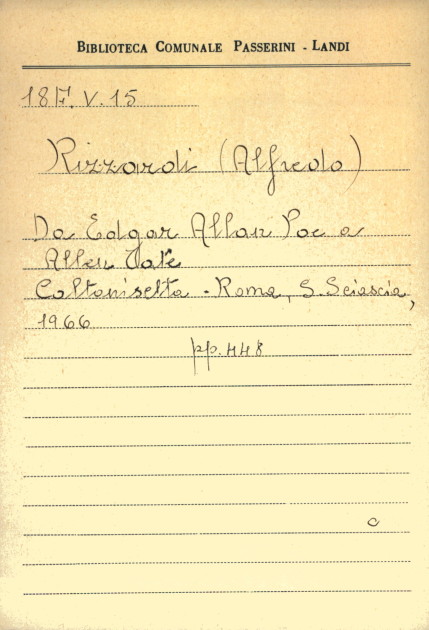 BIBLIOTECA COMUNALE PASSERINI - LANDI
18F. V. 15
Rizzardi (Alfredo)
Da Edgar Allan Poe a
Allen Tate
Caltanisetta - Roma, S. Sciascia,
1966
pp. 448
c